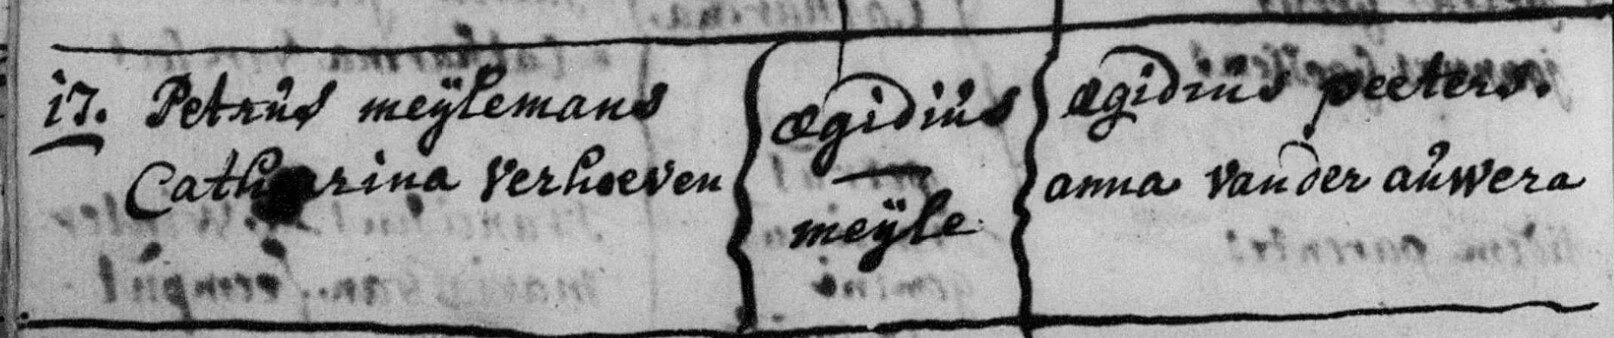 17. Petrus meÿlemans
Catharina Verhoeven
Ægidius
meÿle
Ægidius peeters.
anna van der auwera